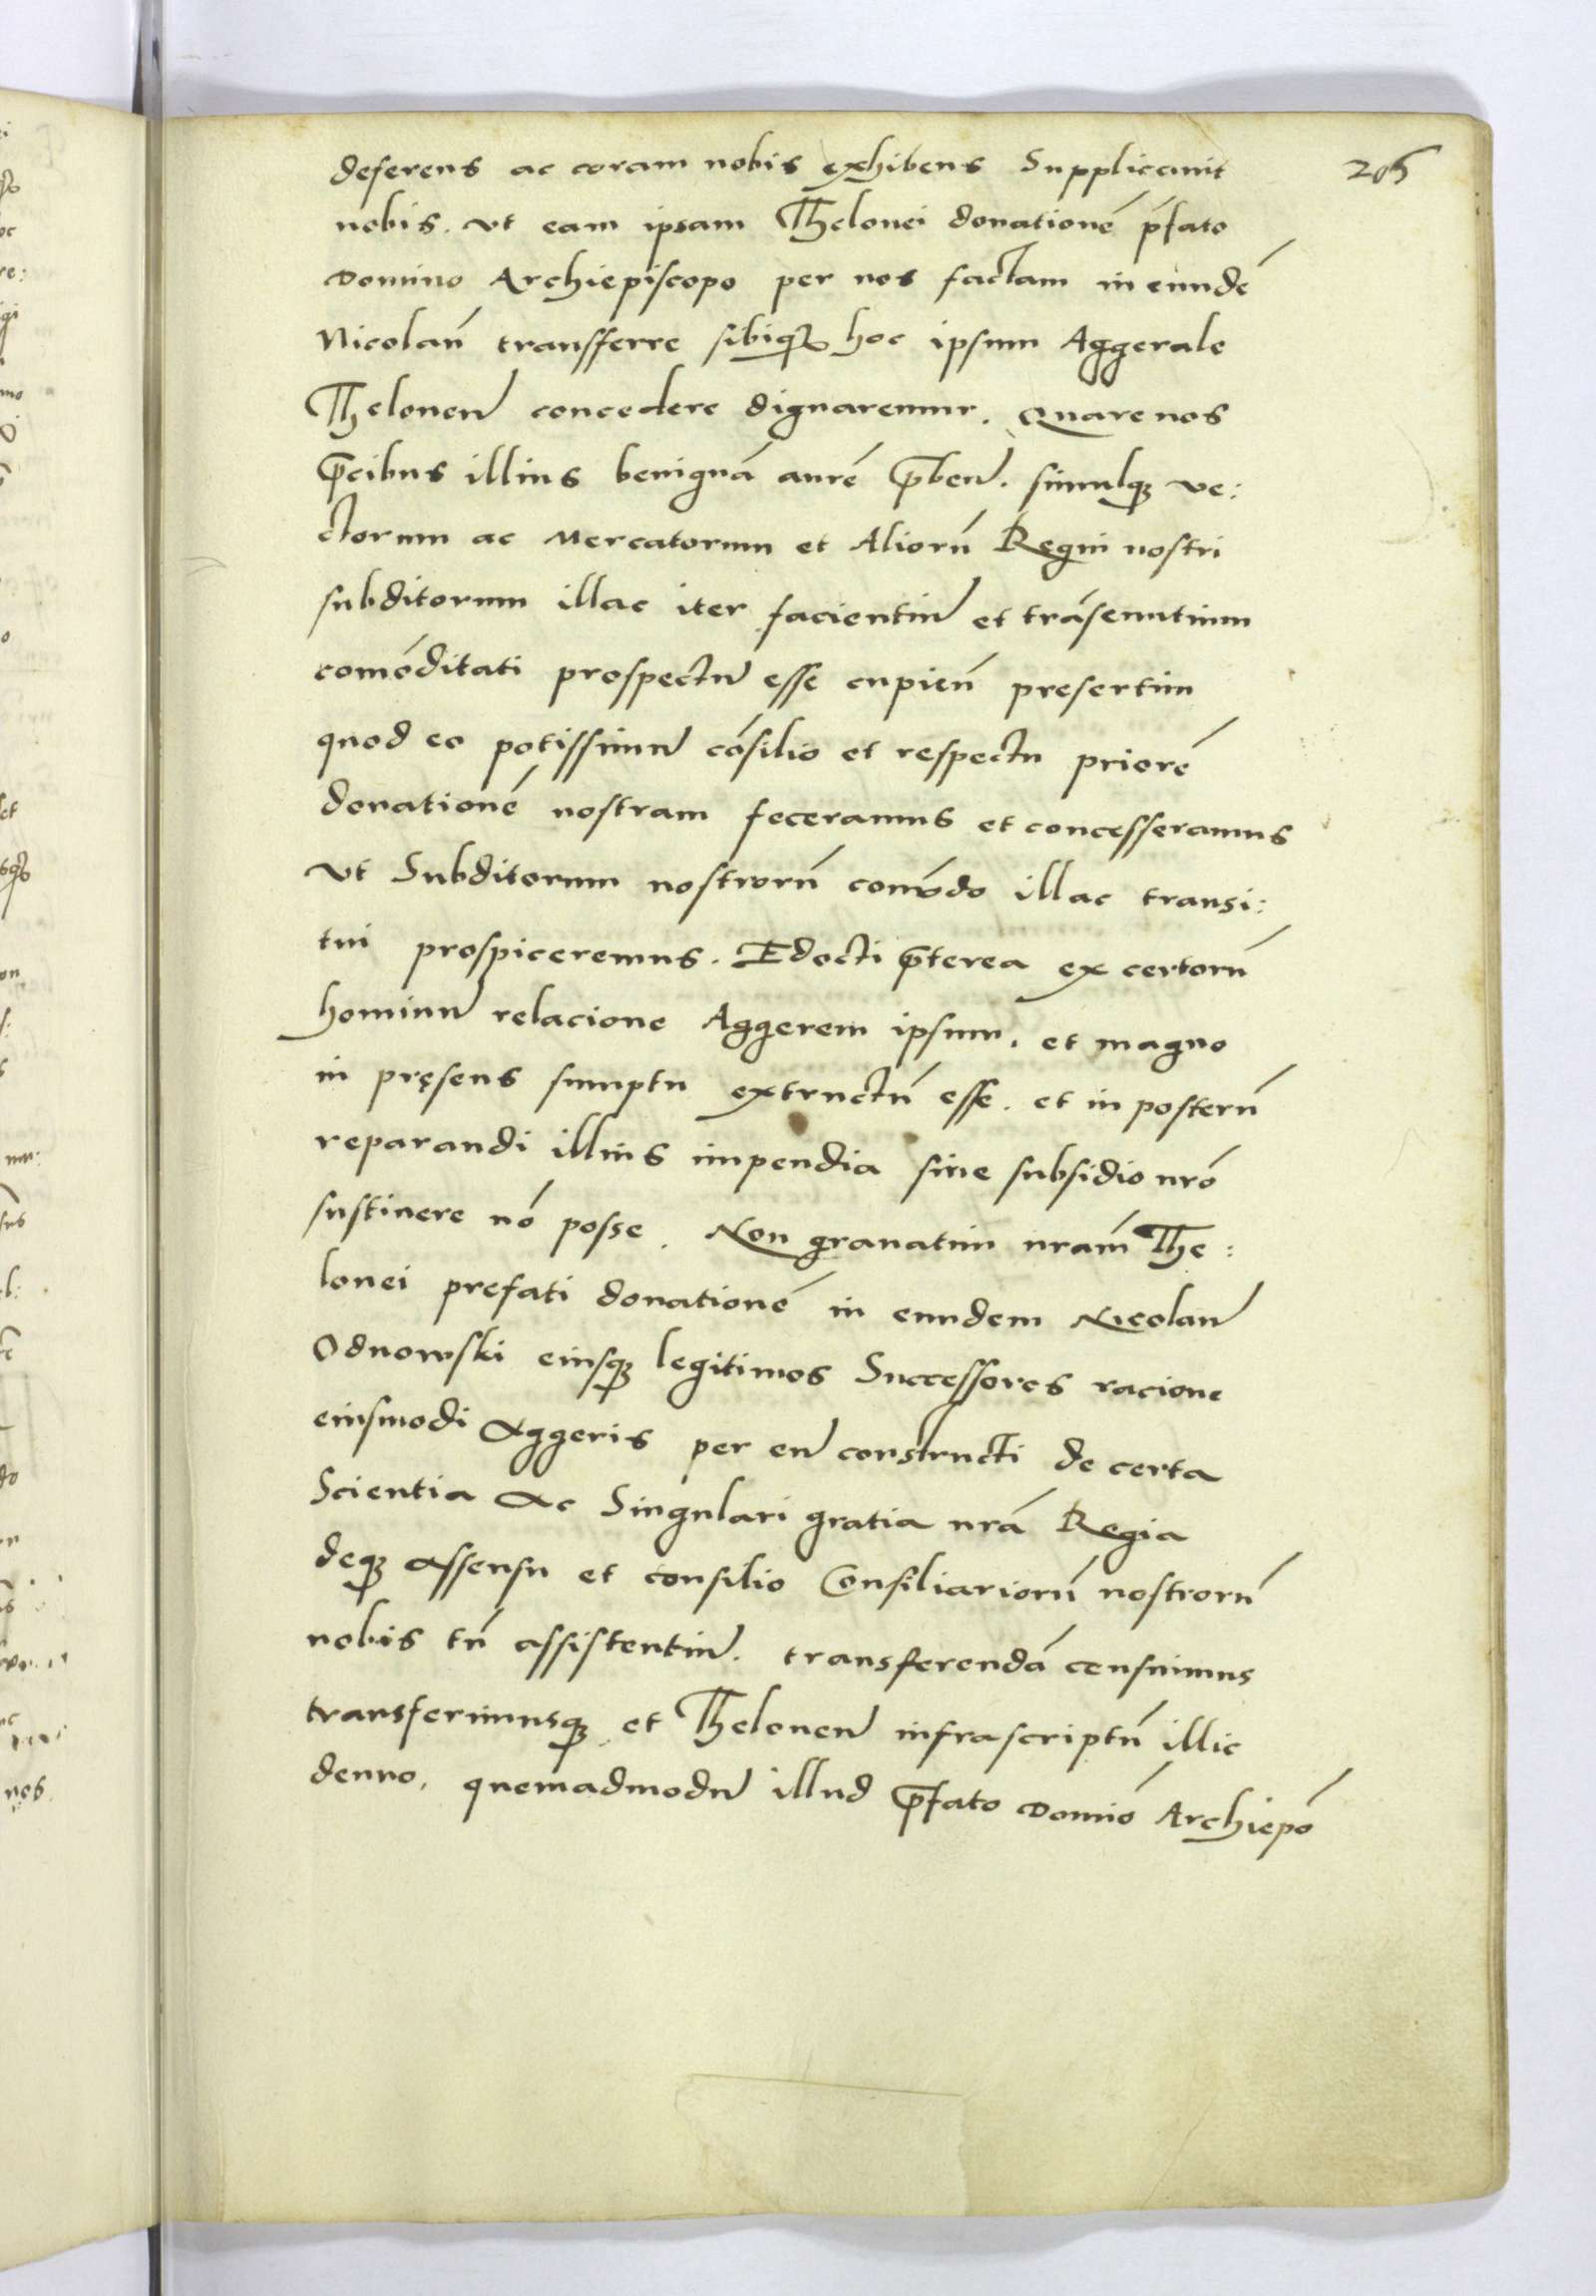 deferens ac coram nobis exhibens Supplicauit
205
nobis. vt eam ipsam Thelonei donationē p̄fato
Domino Archiepiscopo per nos factam in eundē
Nicolaū transfferre sibiqȝ hoc ipsum Aggerale
Theloneū concedere dignaremur. Quare nos
p̄cibus illius benignā aurē p̄beñ. simulqȝ ve:
ctorum ac Mercatorum et Aliorū Regni nostri
subditorum illac iter facientiū et trāseuntium
comōditati prospectū esse cupieñ presertim
quod eo potissimū cōsilio et respectu priorē
donationē nostram feceramus et concesseramus
vt Subditorum nostrorū comōdo illac transi:
tui prospiceremus. Edocti p̄terea ex certorū
hominū relacione Aggerem ipsum. et magno
in pręsens sumptu extructū esse. et in posterū
reparandi illius impendia sine subsidio nr̄o
sustinere nō posse. Non grauatim nr̄am The:
lonei prefati donationē in eundem Nicolaū
Odnowski eiusqȝ legitimos Successores racione
eiusmodi Aggeris per eū constructi de certa
Scientia Ac Singulari gratia nr̄a Regia
deqȝ assensu et consilio Consiliariorū nostrorū
nobis tū assistentiū. transferendā censuimus
transferimusqȝ et Theloneū infrascriptū illic
denuo. quemadmodū illud p̄fato Domiō Archiepō